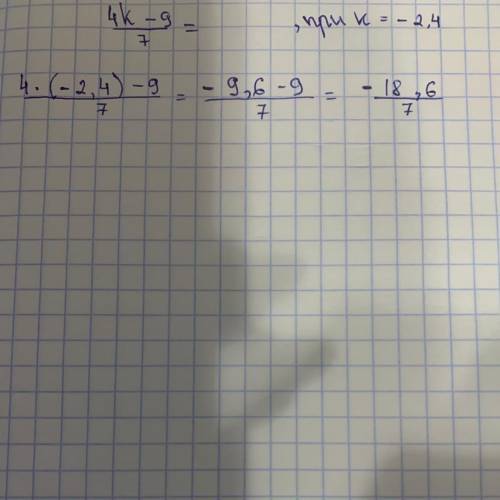 4k - 9 / 7 = , при k = - 2,4
4 · (- 2,4) - 9 / 7 = - 9,6 - 9 / 7 = - 18,6 / 7